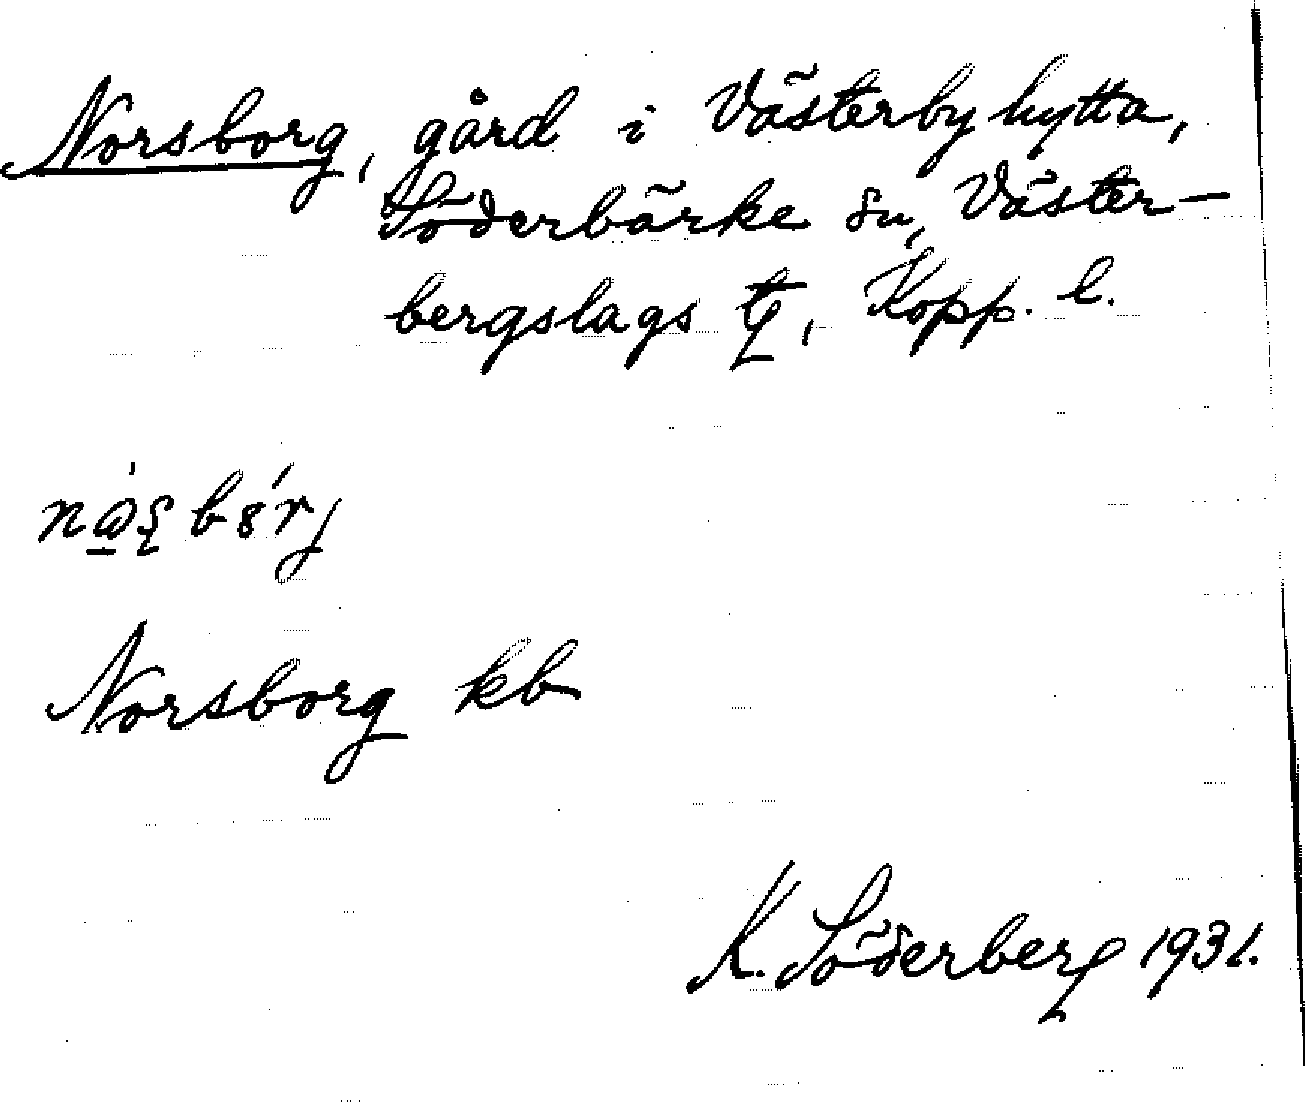 Norsborg, gård i Västerbyhytta,
Söderbärke sn, Väster-
bergslags tg, Kopp. l.
Norsborg kb
K. Söderberg 1931.